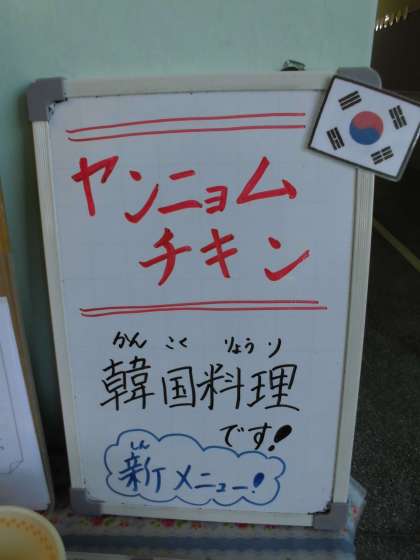 ヤンニョム
チキン
かん こく りょう り
韓国料理
です!
しん
新メニュー!